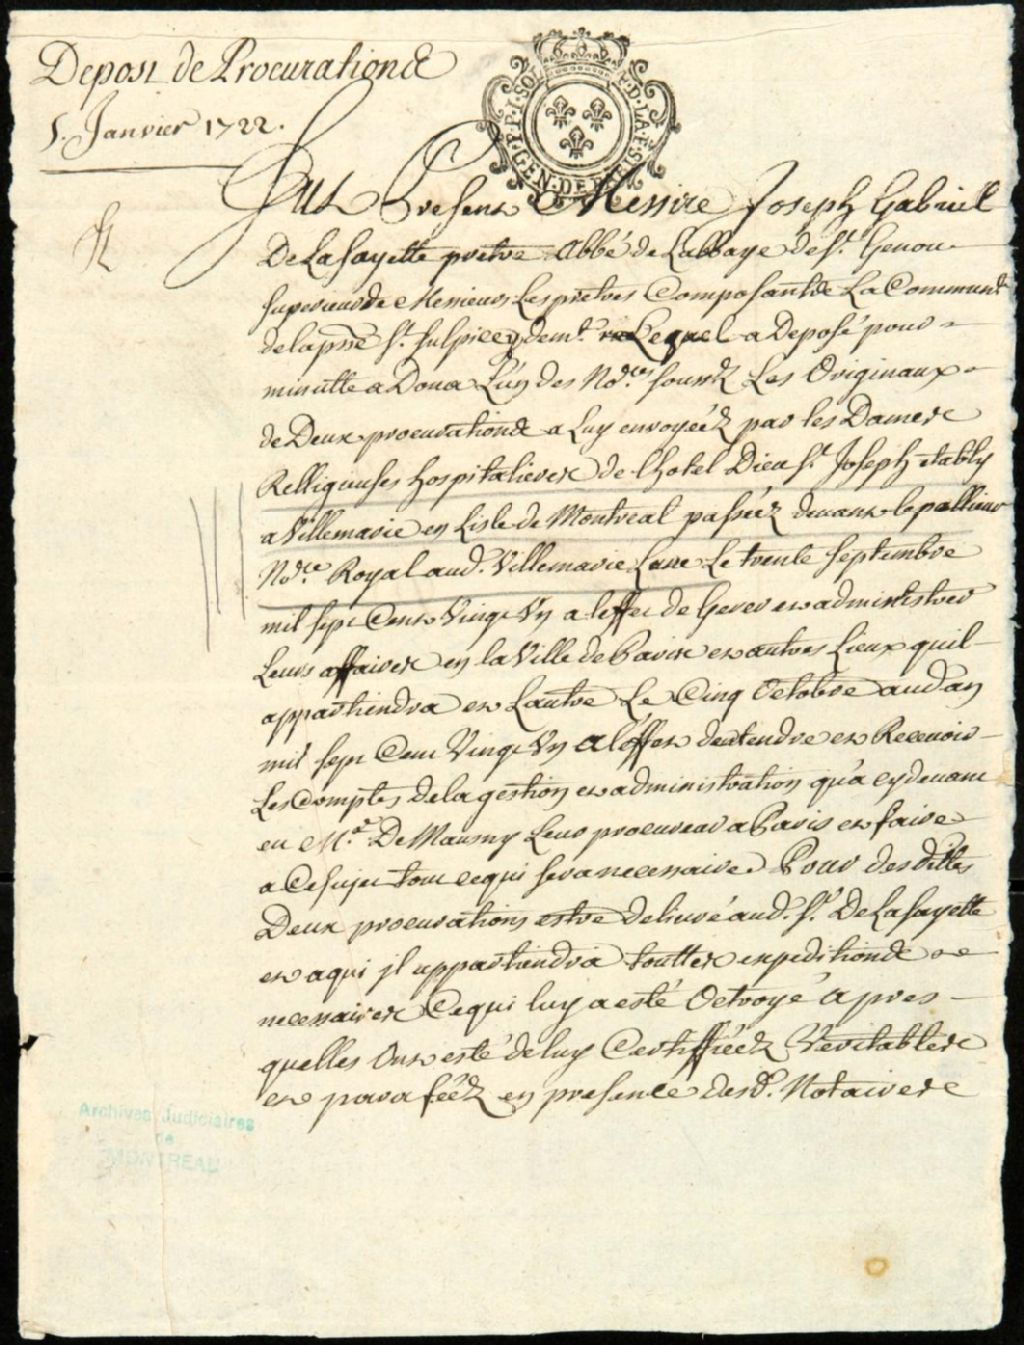 Depost de Procurations
5. Janvier 1722.
GEN. DE PARIS
Fut Present Messire Joseph Gabriel
De Lafayette prêtre Abbé de Labbaye de St. Genou
superieur de Messieurs Les prêtres Composants La Communté
de la psse St. Sulpice y demt. Lequel a Deposé pour
minutte a Doua L'un des Nores. sousnez Les Originaux
de Deux procurations a Luy envoyéez par les Dames
Relligieuses hospitalieres de lhotel Dieu St. Joseph etably
a Villemarie en Lisle de Montreal passéez devant lepallieur
Nore. Royal aud. Villemarie Lune Le trente septembre
mil sept Cent Vingt Un a leffet de Gerer et administrer
Leurs affaires en la Ville de Paris et autres Lieux quil
appartiendra et Lautre Le Cinq Octobre aud an
mil sept Cent Vingt Un a l'effet dentendre et Recevoir
Les Comptes de la gestion et administration qu'a cy devant
eu Mr. De Mausny Leur procureur a Paris et faire
a Ce sujet tout ce qui sera necessaire Pour des dittes
Deux procurations estre delivré aud. Sr. De Lafayette
et a qui jl appartiendra touttes expeditions
necessaires Ce qui luy a esté Octroyé apres
quelles Ont esté de luy Certiffiéez Veritables
et paraféez en presence desd. Notaires
Archives Judiciaires
de
MONTREAL